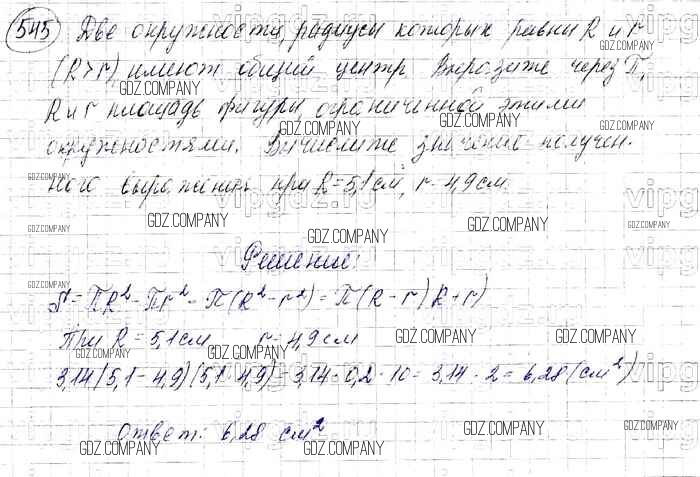 545 Две окружности, радиусы которых равны R и r
(R>r) имеют общий центр. Выразите через π,
R и r площадь фигуры, ограниченной этими
окружностями. Вычислите значение получен-
ного выражения при R=5,1 см, r=4,9 см.
Решение:
S = πR² - πr² = π(R² - r²) = π(R - r)(R + r)
При R = 5,1 см, r = 4,9 см
3,14(5,1 - 4,9)(5,1 4,9) = 3,14 · 0,2 · 10 = 3,14 · 2 = 6,28 (см²)
Ответ: 6,28 см²
GDZ.COMPANY
vipgdz.ru